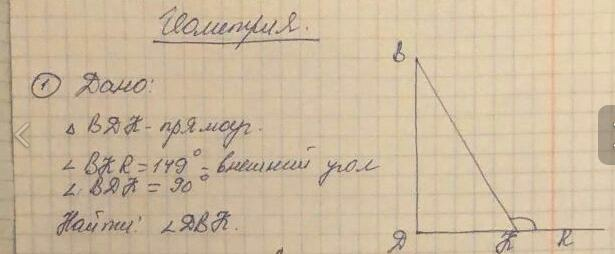 Геометрия.
① Дано:
△ ВДК - прямоуг.
∠ ВКR = 149° - внешний угол
∠ ВДК = 90°
Найти: ∠ ДВК.
В
Д К R